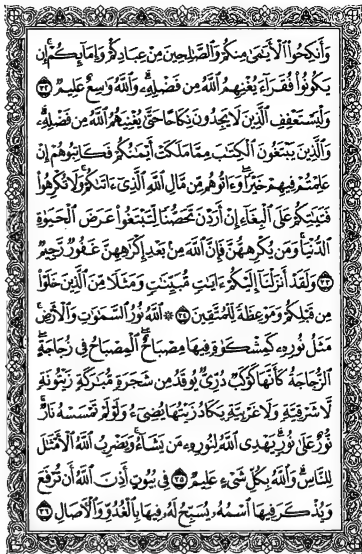 وَأَنكِحُوا۟ ٱلْأَيَـٰمَىٰ مِنكُمْ وَٱلصَّـٰلِحِينَ مِنْ عِبَادِكُمْ وَإِمَآئِكُمْ ۚ إِن
يَكُونُوا۟ فُقَرَآءَ يُغْنِهِمُ ٱللَّهُ مِن فَضْلِهِۦ ۗ وَٱللَّهُ وَٰسِعٌ عَلِيمٌ ٣٢
وَلْيَسْتَعْفِفِ ٱلَّذِينَ لَا يَجِدُونَ نِكَاحًا حَتَّىٰ يُغْنِيَهُمُ ٱللَّهُ مِن فَضْلِهِۦ ۗ
وَٱلَّذِينَ يَبْتَغُونَ ٱلْكِتَـٰبَ مِمَّا مَلَكَتْ أَيْمَـٰنُكُمْ فَكَاتِبُوهُمْ إِنْ
عَلِمْتُمْ فِيهِمْ خَيْرًا ۖ وَءَاتُوهُم مِّن مَّالِ ٱللَّهِ ٱلَّذِىٓ ءَاتَىٰكُمْ ۚ وَلَا تُكْرِهُوا۟
فَتَيَـٰتِكُمْ عَلَى ٱلْبِغَآءِ إِنْ أَرَدْنَ تَحَصُّنًا لِّتَبْتَغُوا۟ عَرَضَ ٱلْحَيَوٰةِ
ٱلدُّنْيَا ۚ وَمَن يُكْرِههُّنَّ فَإِنَّ ٱللَّهَ مِنۢ بَعْدِ إِكْرَٰهِهِنَّ غَفُورٌ رَّحِيمٌ
٣٣ وَلَقَدْ أَنزَلْنَآ إِلَيْكُمْ ءَايَـٰتٍ مُّبَيِّنَـٰتٍ وَمَثَلًا مِّنَ ٱلَّذِينَ خَلَوْا۟
مِن قَبْلِكُمْ وَمَوْعِظَةً لِّلْمُتَّقِينَ ٣٤ ۞ ٱللَّهُ نُورُ ٱلسَّمَـٰوَٰتِ وَٱلْأَرْضِ ۚ
مَثَلُ نُورِهِۦ كَمِشْكَوٰةٍ فِيهَا مِصْبَاحٌ ۖ ٱلْمِصْبَاحُ فِى زُجَاجَةٍ ۖ
ٱلزُّجَاجَةُ كَأَنَّهَا كَوْكَبٌ دُرِّىٌّ يُوقَدُ مِن شَجَرَةٍ مُّبَـٰرَكَةٍ زَيْتُونَةٍ
لَّا شَرْقِيَّةٍ وَلَا غَرْبِيَّةٍ يَكَادُ زَيْتُهَا يُضِىٓءُ وَلَوْ لَمْ تَمْسَسْهُ نَارٌ ۚ
نُّورٌ عَلَىٰ نُورٍ ۗ يَهْدِى ٱللَّهُ لِنُورِهِۦ مَن يَشَآءُ ۚ وَيَضْرِبُ ٱللَّهُ ٱلْأَمْثَـٰلَ
لِلنَّاسِ ۗ وَٱللَّهُ بِكُلِّ شَىْءٍ عَلِيمٌ ٣٥ فِى بُيُوتٍ أَذِنَ ٱللَّهُ أَن تُرْفَعَ
وَيُذْكَرَ فِيهَا ٱسْمُهُۥ يُسَبِّحُ لَهُۥ فِيهَا بِٱلْغُدُوِّ وَٱلْـَٔاصَالِ ٣٦